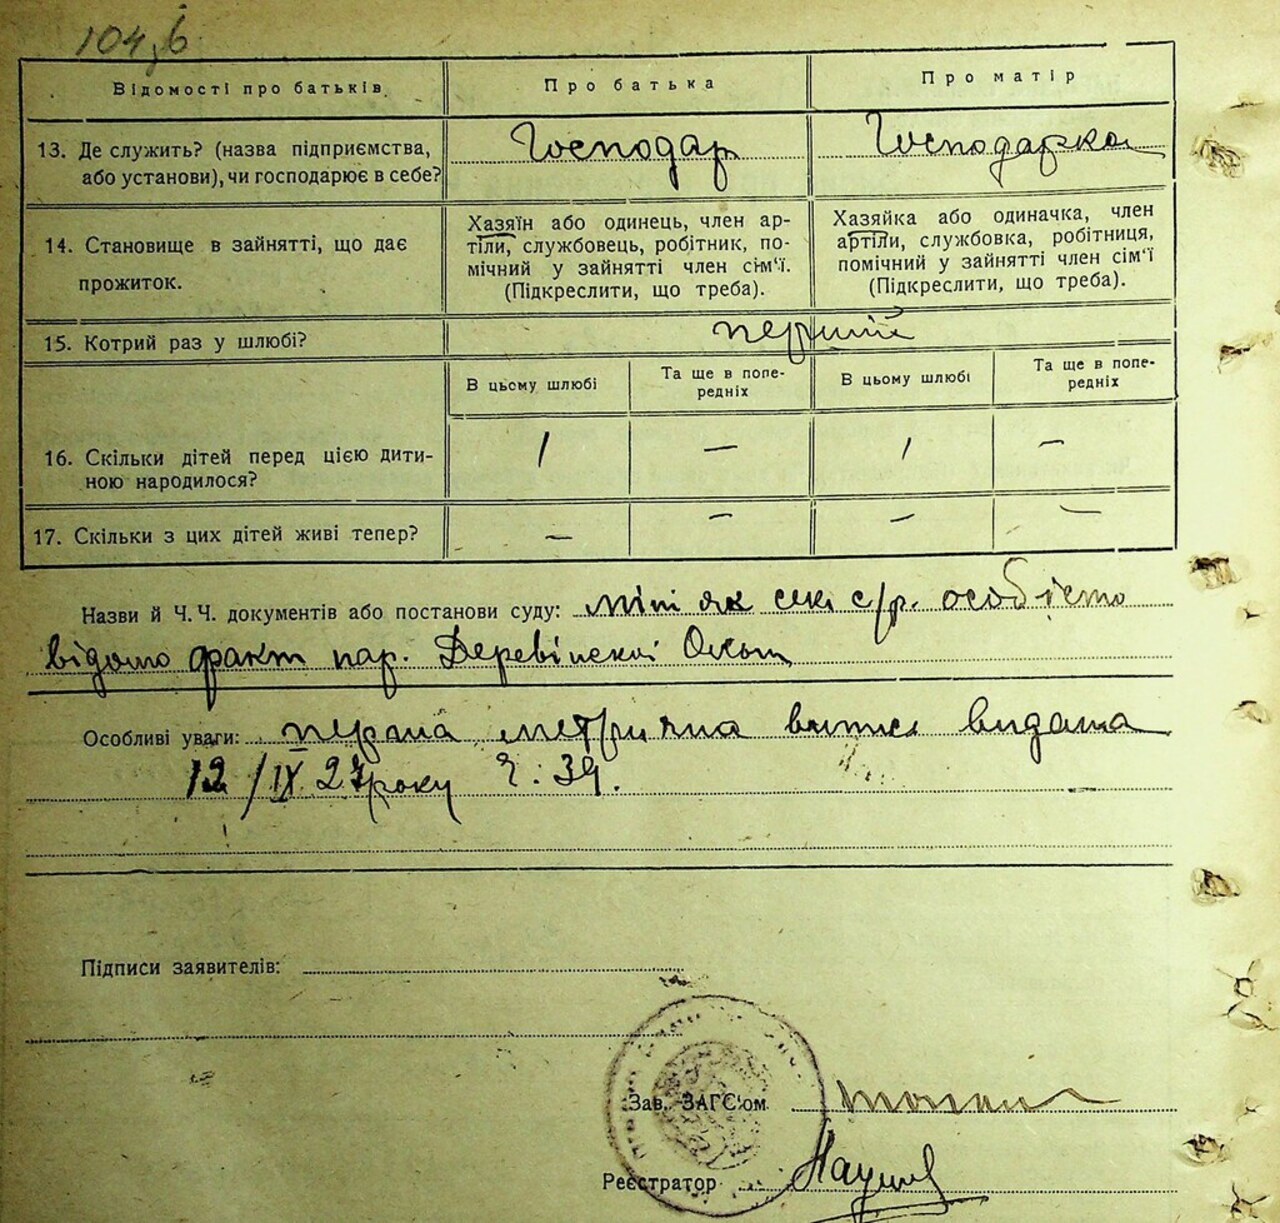 104,б
Відомості про батьків
Про батька
Про матір
13. Де служить? (назва підприємства,
або установи), чи господарює в себе?
Господар
Господарка
14. Становище в зайнятті, що дає
прожиток.
Хазяїн або одинець, член ар-
тіли, службовець, робітник, по-
мічний у зайнятті член сім'ї.
(Підкреслити, що треба).
Хазяйка або одиначка, член
артіли, службовка, робітниця,
помічний у зайнятті член сім'ї
(Підкреслити, що треба).
15. Котрий раз у шлюбі?
перший
В цьому шлюбі
Та ще в попе-
редніх
В цьому шлюбі
Та ще в попе-
редніх
16. Скільки дітей перед цією дити-
ною народилося?
1 — 1 —
17. Скільки з цих дітей живі тепер?
— — — —
Назви й Ч. Ч. документів або постанови суду: мені як сек. с/р. особисто
відомо факт нар. Ольги
Особливі уваги: перша метрична витис видана
12/IX 27 року Ч. 39.
Підписи заявителів:
Зав. ЗАГС'ом
Реєстратор